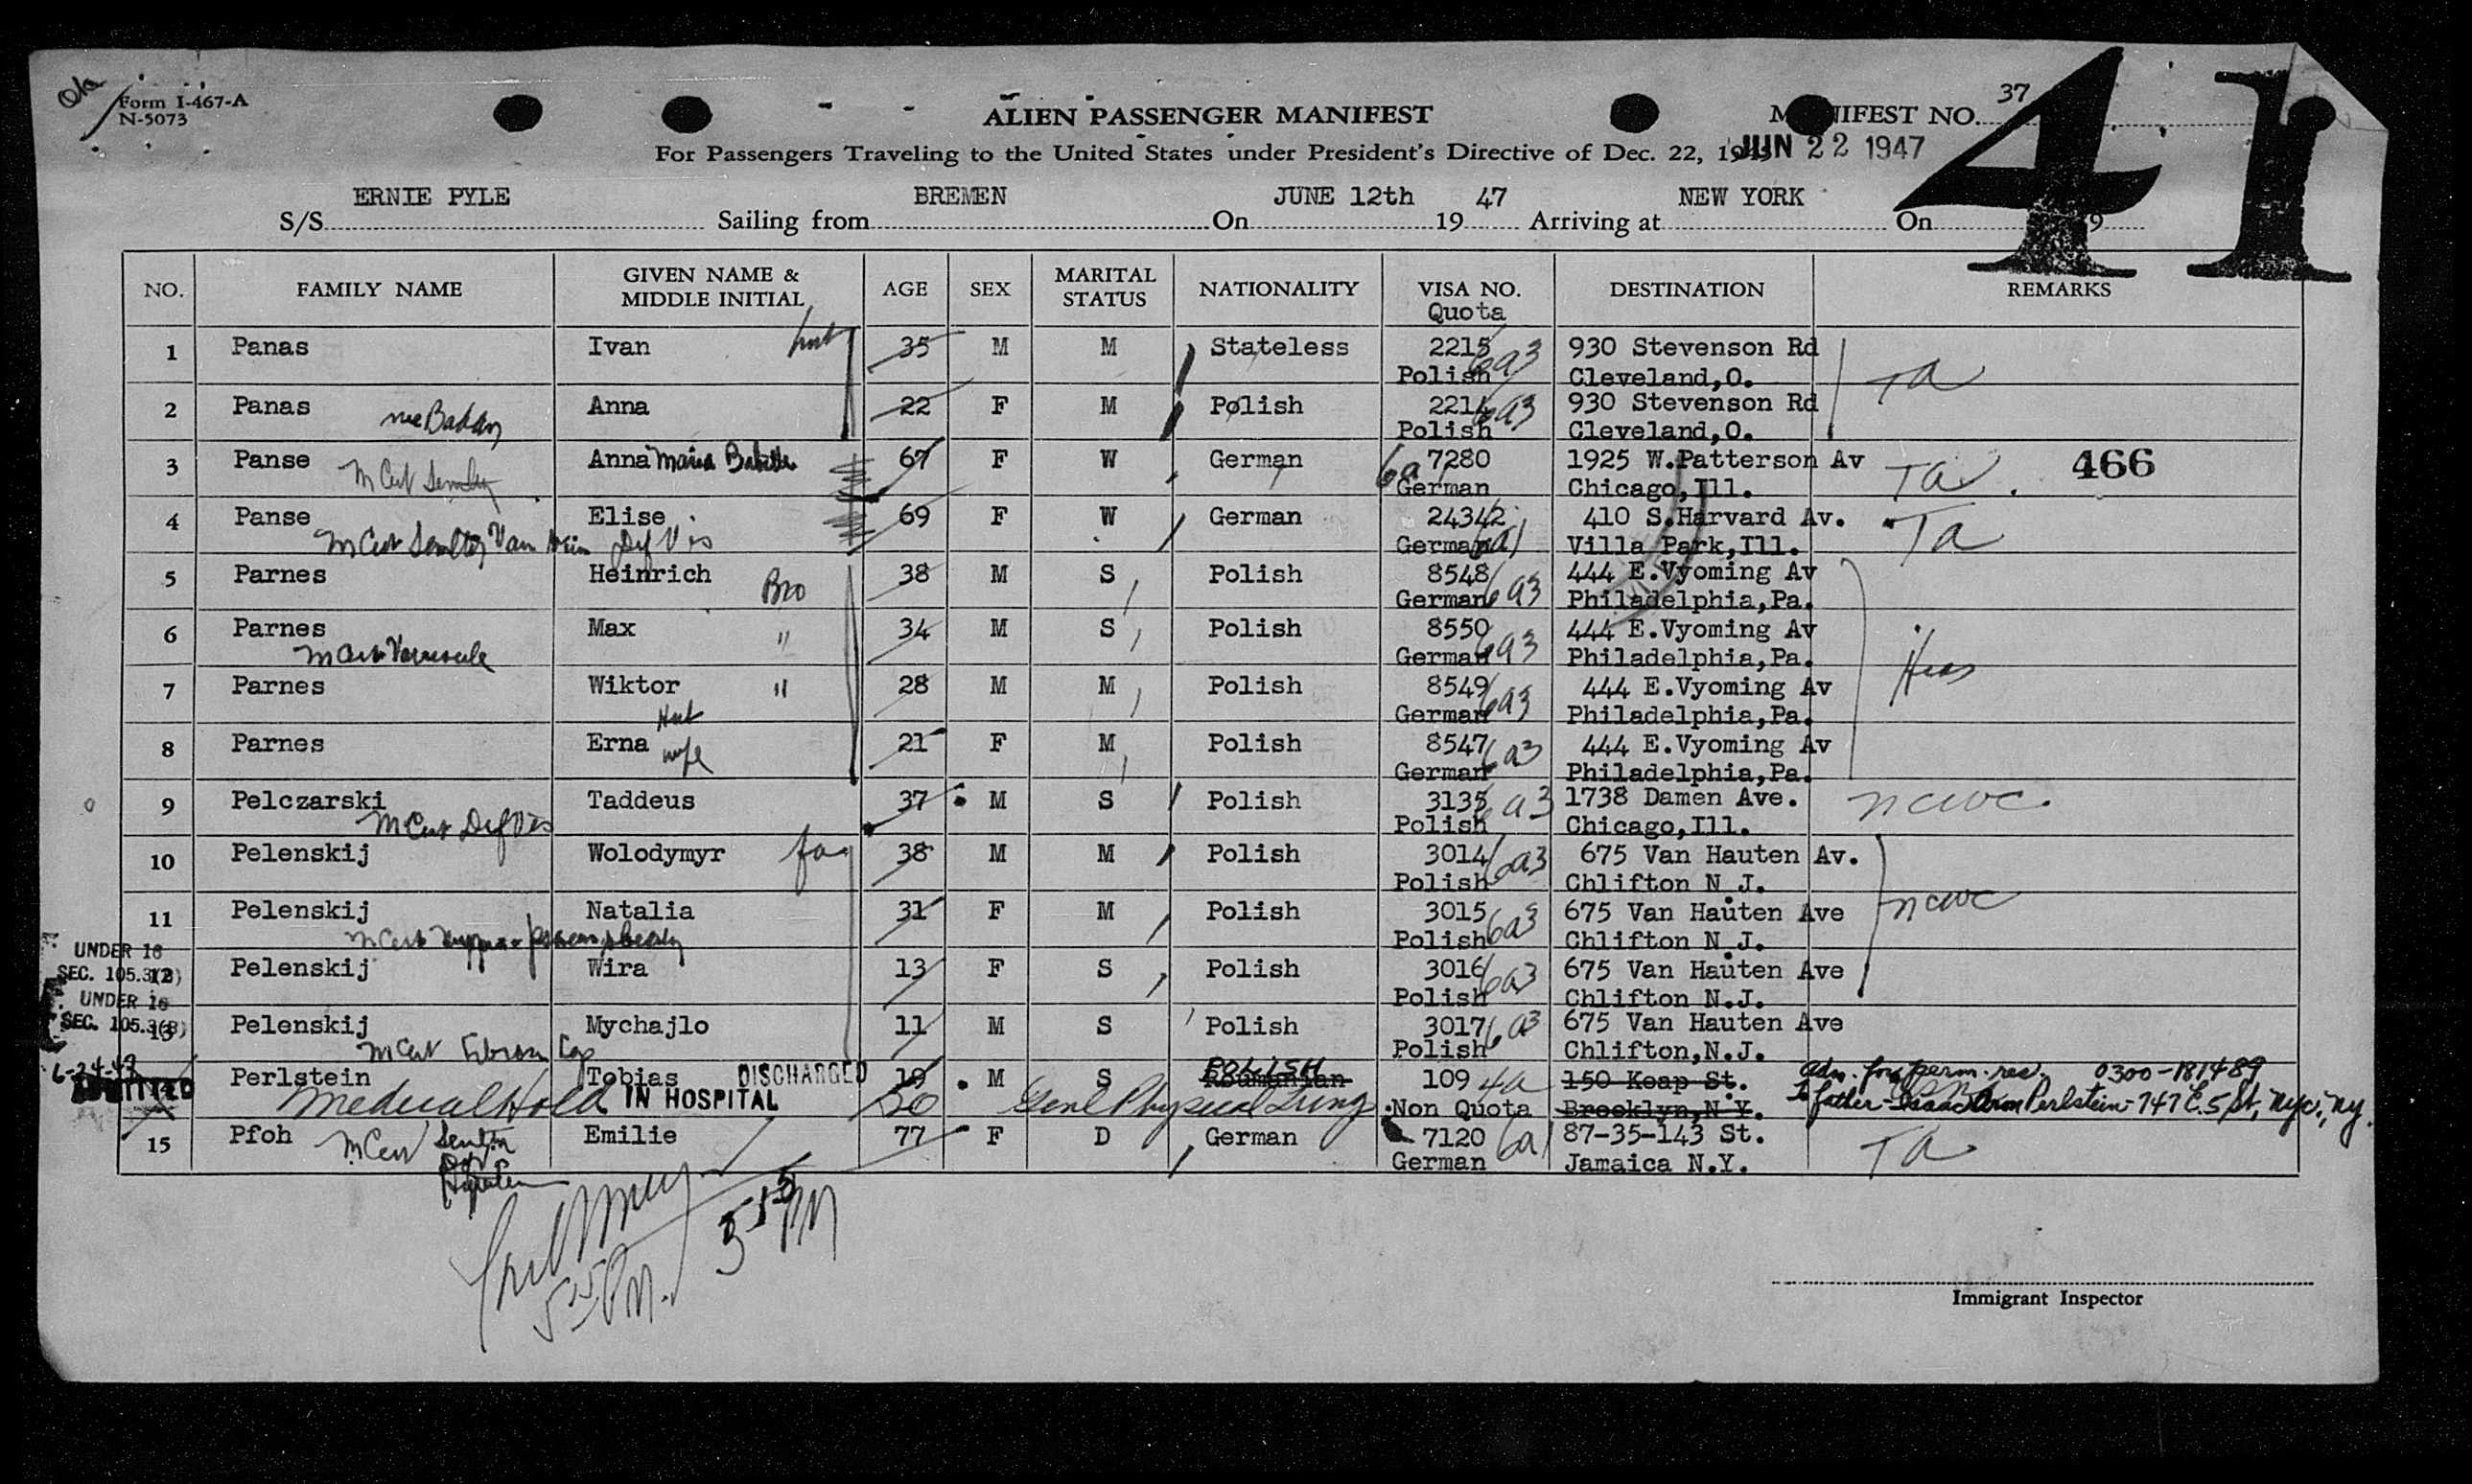 Ok
Form I-467-A
N-5073
ALIEN PASSENGER MANIFEST
MANIFEST NO. 37
41
For Passengers Traveling to the United States under President's Directive of Dec. 22, 1945
JUN 22 1947
S/S ERNIE PYLE Sailing from BREMEN On JUNE 12th 19 47 Arriving at NEW YORK On 19
NO. FAMILY NAME GIVEN NAME & MIDDLE INITIAL AGE SEX MARITAL STATUS NATIONALITY VISA NO. Quota DESTINATION REMARKS
1 Panas Ivan 35 M M Stateless 2215 6a3 930 Stevenson Rd TA
Polish Cleveland,O.
2 Panas nee Badan Anna 22 F M Polish 2214 6a3 930 Stevenson Rd
Polish Cleveland,O.
3 Panse M Cert Anna Maria Babette 67 F W German 6a 7280 1925 W.Patterson Av TA 466
German Chicago,Ill.
4 Panse Elise 69 F W German 24342 6a1 410 S.Harvard Av. TA
M Cert Def Vis German Villa Park,Ill.
5 Parnes Heinrich Bro 38 M S Polish 8548 6a3 444 E.Vyoming Av
German Philadelphia,Pa.
6 Parnes Max " 34 M S Polish 8550 6a3 444 E.Vyoming Av Hias
M Cert German Philadelphia,Pa.
7 Parnes Wiktor " 28 M M Polish 8549 6a3 444 E.Vyoming Av
German Philadelphia,Pa.
8 Parnes Erna wife 21 F M Polish 8547 6a3 444 E.Vyoming Av
German Philadelphia,Pa.
9 Pelczarski Taddeus 37 M S Polish 3135 6a3 1738 Damen Ave. NCWC
M Cert Def Vis Polish Chicago,Ill.
10 Pelenskij Wolodymyr fa 38 M M Polish 3014 6a3 675 Van Hauten Av.
Polish Chlifton N.J.
11 Pelenskij Natalia 31 F M Polish 3015 6a3 675 Van Hauten Ave NCWC
M Cert Polish Chlifton N.J.
UNDER 16
SEC. 105.3(B)
12 Pelenskij Wira 13 F S Polish 3016 6a3 675 Van Hauten Ave
Polish Chlifton N.J.
UNDER 16
SEC. 105.3(B)
13 Pelenskij Mychajlo 11 M S Polish 3017 6a3 675 Van Hauten Ave
M Cert Polish Chlifton,N.J.
6-24-47 ADMITTED
Perlstein Tobias DISCHARGED 19 M S POLISH Roumanian 109 4a 150 Keap St. Adm. for perm. res. 0300-181489
Medical Hold IN HOSPITAL 20 Genl Physical Lung Non Quota Brooklyn,N.Y. To father- Perlstein-747 E. 5 St, NYC, NY.
15 Pfoh M Cert Emilie 77 F D German 7120 6a1 87-35-143 St. TA
German Jamaica N.Y.
Immigrant Inspector